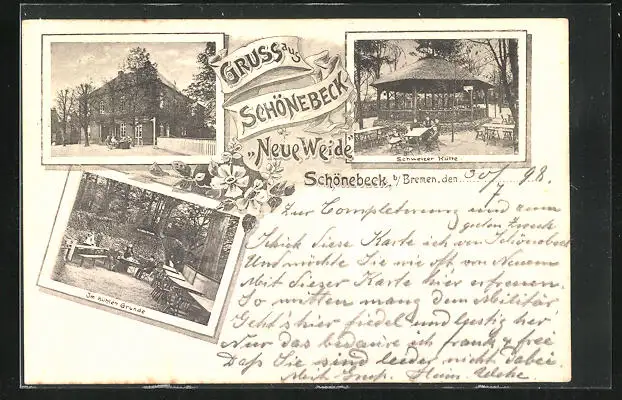 GRUSS aus
SCHÖNEBECK
"Neue Weide"
Schweizer Hütte
Schönebeck b/Bremen, den 30/7 98.
Im kühlen Grunde
Zur Completierung und zum
guten Zweck
Schick diese Karte ich von Schönebeck
Und möchte Sie wie oft von Neuem
Mit dieser Karte hier erfreuen.
So mitten mang dem Militär
Geht's hier fidel und lustig her
Nur das bedaure ich frank & frei
Daß Sie sind leider nicht dabei.
Mit Heinr.